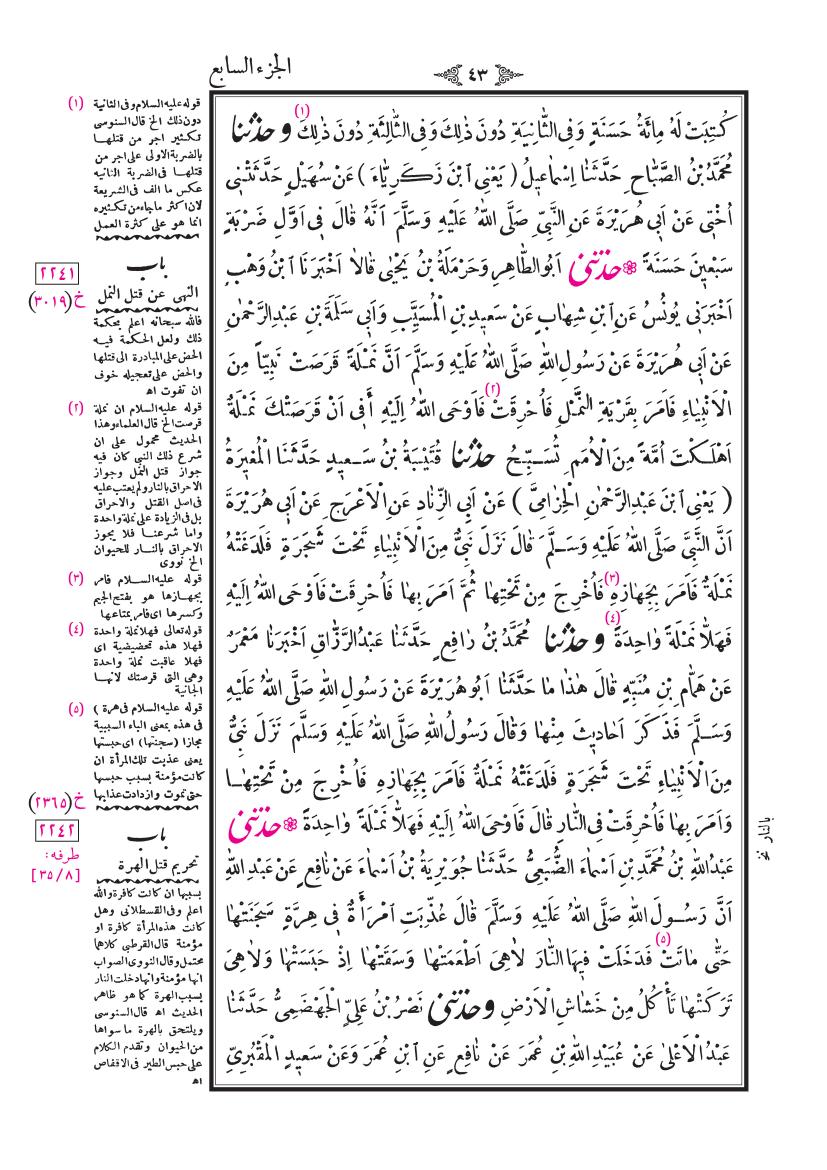 الجزء السابع
٤٣
كُتِبَتْ لَهُ مِائَةُ حَسَنَةٍ وَفِى الثَّانِيَةِ دُونَ ذٰلِكَ وَفِى الثَّالِثَةِ دُونَ ذٰلِكَ (١) و حدثنا
مُحَمَّدُ بْنُ الصَّبَّاحِ حَدَّثَنَا اِسْمَاعِيلُ ( يَعْنِى ابْنَ زَكَرِيَّاءَ ) عَنْ سُهَيْلٍ حَدَّثَتْنِى
اُخْتِى عَنْ اَبِى هُرَيْرَةَ عَنِ النَّبِىِّ صَلَّى اللهُ عَلَيْهِ وَسَلَّمَ اَنَّهُ قَالَ فِى اَوَّلِ ضَرْبَةٍ
سَبْعِينَ حَسَنَةً ۞ حدثنى اَبُو الطَّاهِرِ وَحَرْمَلَةُ بْنُ يَحْيٰى قَالَا اَخْبَرَنَا ابْنُ وَهْبٍ
اَخْبَرَنِى يُونُسُ عَنِ ابْنِ شِهَابٍ عَنْ سَعِيدِ بْنِ الْمُسَيَّبِ وَاَبِى سَلَمَةَ بْنِ عَبْدِ الرَّحْمٰنِ
عَنْ اَبِى هُرَيْرَةَ عَنْ رَسُولِ اللهِ صَلَّى اللهُ عَلَيْهِ وَسَلَّمَ اَنَّ نَمْلَةً قَرَصَتْ نَبِيّاً مِنَ
الْاَنْبِيَاءِ فَاَمَرَ بِقَرْيَةِ النَّمْلِ فَاُحْرِقَتْ (٢) فَاَوْحَى اللهُ اِلَيْهِ اَفِى اَنْ قَرَصَتْكَ نَمْلَةٌ
اَهْلَكْتَ اُمَّةً مِنَ الْاُمَمِ تُسَبِّحُ حدثنا قُتَيْبَةُ بْنُ سَعِيدٍ حَدَّثَنَا الْمُغِيرَةُ
( يَعْنِى ابْنَ عَبْدِ الرَّحْمٰنِ الْحِزَامِىَّ ) عَنْ اَبِى الزِّنَادِ عَنِ الْاَعْرَجِ عَنْ اَبِى هُرَيْرَةَ
اَنَّ النَّبِىَّ صَلَّى اللهُ عَلَيْهِ وَسَلَّمَ قَالَ نَزَلَ نَبِىٌّ مِنَ الْاَنْبِيَاءِ تَحْتَ شَجَرَةٍ فَلَدَغَتْهُ
نَمْلَةٌ فَاَمَرَ بِجَهَازِهِ (٣) فَاُخْرِجَ مِنْ تَحْتِهَا ثُمَّ اَمَرَ بِهَا فَاُحْرِقَتْ فَاَوْحَى اللهُ اِلَيْهِ
فَهَلَّا نَمْلَةً وَاحِدَةً (٤) و حدثنا مُحَمَّدُ بْنُ رَافِعٍ حَدَّثَنَا عَبْدُ الرَّزَّاقِ اَخْبَرَنَا مَعْمَرٌ
عَنْ هَمَّامِ بْنِ مُنَبِّهٍ قَالَ هٰذَا مَا حَدَّثَنَا اَبُو هُرَيْرَةَ عَنْ رَسُولِ اللهِ صَلَّى اللهُ عَلَيْهِ
وَسَلَّمَ فَذَكَرَ اَحَادِيثَ مِنْهَا وَقَالَ رَسُولُ اللهِ صَلَّى اللهُ عَلَيْهِ وَسَلَّمَ نَزَلَ نَبِىٌّ
مِنَ الْاَنْبِيَاءِ تَحْتَ شَجَرَةٍ فَلَدَغَتْهُ نَمْلَةٌ فَاَمَرَ بِجَهَازِهِ فَاُخْرِجَ مِنْ تَحْتِهَا
وَاَمَرَ بِهَا فَاُحْرِقَتْ فِى النَّارِ قَالَ فَاَوْحَى اللهُ اِلَيْهِ فَهَلَّا نَمْلَةً وَاحِدَةً ۞ حدثنى
عَبْدُ اللهِ بْنُ مُحَمَّدِ بْنِ اَسْمَاءَ الضُّبَعِىُّ حَدَّثَنَا جُوَيْرِيَةُ بْنُ اَسْمَاءَ عَنْ نَافِعٍ عَنْ عَبْدِ اللهِ
اَنَّ رَسُولَ اللهِ صَلَّى اللهُ عَلَيْهِ وَسَلَّمَ قَالَ عُذِّبَتِ امْرَأَةٌ فِى هِرَّةٍ سَجَنَتْهَا
حَتَّى مَاتَتْ (٥) فَدَخَلَتْ فِيهَا النَّارَ لَا هِىَ اَطْعَمَتْهَا وَسَقَتْهَا اِذْ حَبَسَتْهَا وَلَا هِىَ
تَرَكَتْهَا تَأْكُلُ مِنْ خَشَاشِ الْاَرْضِ و حدثنى نَصْرُ بْنُ عَلِىٍّ الْجَهْضَمِىُّ حَدَّثَنَا
عَبْدُ الْاَعْلٰى عَنْ عُبَيْدِ اللهِ بْنِ عُمَرَ عَنْ نَافِعٍ عَنِ ابْنِ عُمَرَ وَعَنْ سَعِيدٍ الْمَقْبُرِىِّ
بالنار نخ
(١) قوله عليه السلام وفى الثانية
دون ذلك الخ قال السنوسى
تكثير اجر من قتلها
بالضربة الاولى على اجر من
قتلها فى الضربة الثانيه
عكس ما الف فى الشريعة
لان اكثر ما جاء من تكثيره
انما هو على كثرة العمل
باب
٢٢٤١
النهى عن قتل النمل
خ (٣٠١٩)
فالله سبحانه اعلم بحكمة
ذلك ولعل الحكمة فيه
الحض على المبادرة الى قتلها
والحض على تعجيله خوف
ان تفوت اه
(٢) قوله عليه السلام ان نملة
قرصت الخ قال العلماء وهذا
الحديث محمول على ان
شرع ذلك النبى كان فيه
جواز قتل النمل وجواز
الاحراق بالنار ولم يعتب عليه
فى اصل القتل والاحراق
بل فى الزيادة على نملة واحدة
واما شرعنا فلا يجوز
الاحراق بالنار للحيوان
الخ نووى
(٣) قوله عليه السلام فامر
بجهازها هو بفتح الجيم
وكسرها اى فامر بمتاعها
(٤) قوله تعالى فهلا نملة واحدة
فهلا هذه تحضيضية اى
فهلا عاقبت نملة واحدة
وهى التى قرصتك لانها
الجانية
(٥) قوله عليه السلام فى هرة )
فى هذه بمعنى الباء السببية
مجازا (سجنتها) اى حبستها
يعنى عذبت تلك المرأة ان
كانت مؤمنة بسبب حبسها
حتى تموت وازدادت عذابها
خ (٢٣٦٥)
باب
٢٢٤٢
تحريم قتل الهرة
طرفه:
[٣٥/٨]
بسببها ان كانت كافرة والله
اعلم وفى القسطلانى وهل
كانت هذه المرأة كافرة او
مؤمنة قال القرطبى كلاهما
محتمل وقال النووى الصواب
انها مؤمنة وانها دخلت النار
بسبب الهرة كما هو ظاهر
الحديث اه قال السنوسى
ويلتحق بالهرة ما سواها
من الحيوان وتقدم الكلام
على حبس الطير فى الاقفاص
اه